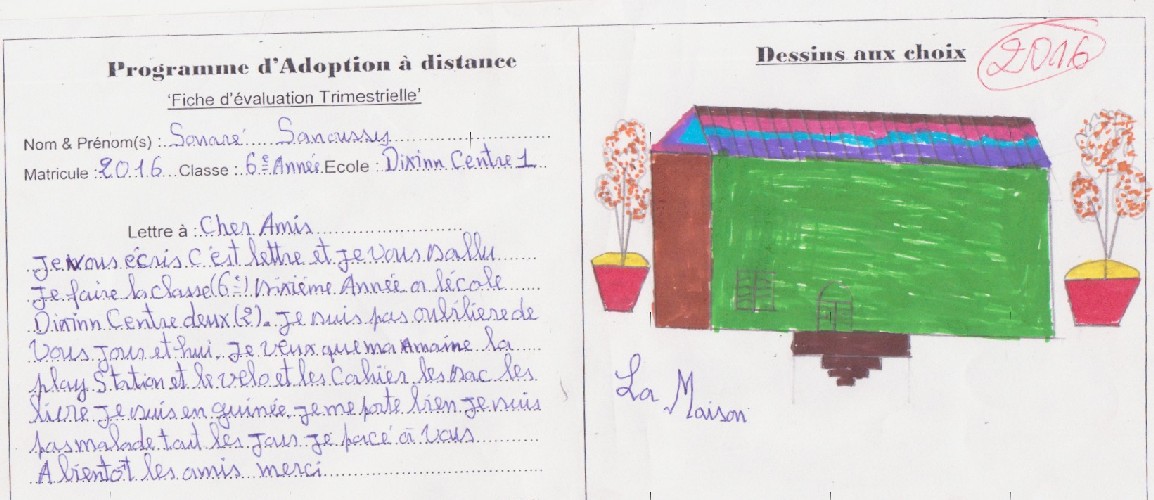 Programme d'Adoption à distance
'Fiche d'évaluation Trimestrielle'
Nom & Prénom(s) : Sonaré Sanoussy
Matricule : 2016 Classe : 6e Année Ecole : Dixinn Centre 1
Lettre à : Cher Amis
Je vous écris c'est lettre et je vous sallu
Je faire la classe (6e) sixième Année a lécole
Dixinn Centre deux (2). Je suis pas oubiliere de
Vous jous et hui. Je veux que ma Amaine la
play Station et le vélo et les Cahier les sac les
livre je suis en guinée je me porte bien je suis
pas malade tout les jour je pacé à vous
A bientot les amis merci
Dessins aux choix
2016
La Maison